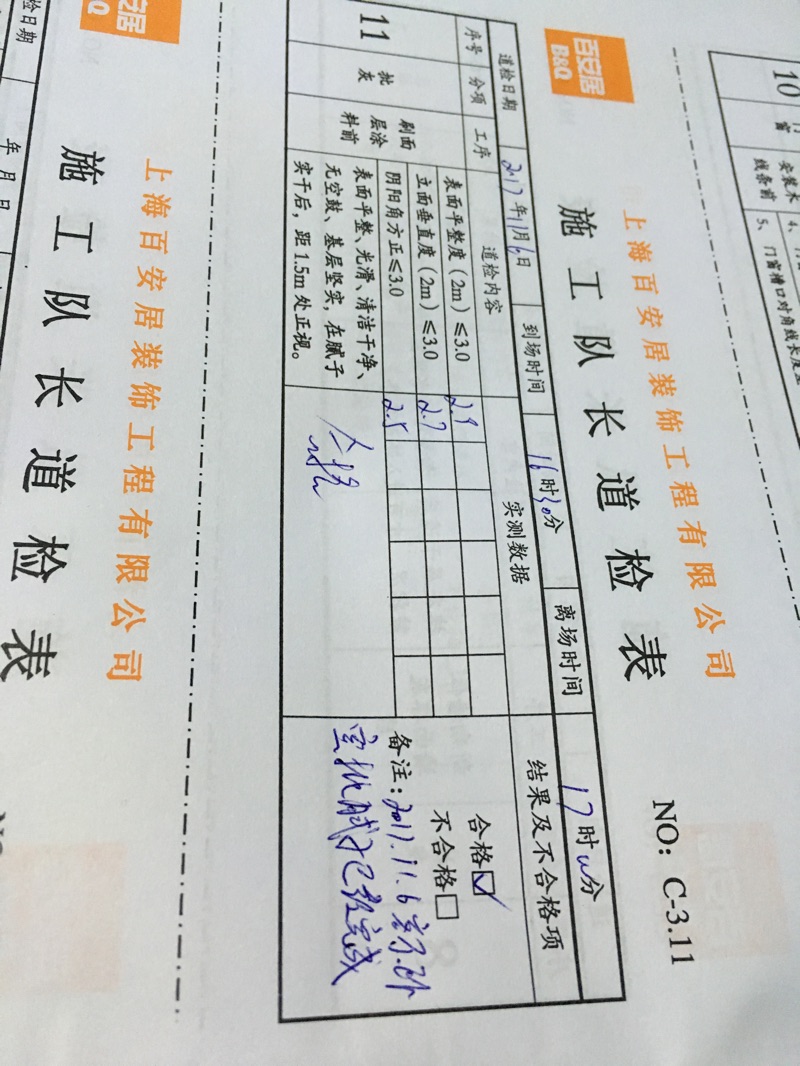 10
窗
安装木
线条前
5、门窗槽口对角线长度差
百安居
B&Q
上海百安居装饰工程有限公司
施工队长道检表
NO: C-3.11
道检日期
2017年11月6日
到场时间
16时30分
离场时间
17时 分
序号
分项
工序
道检内容
实测数据
结果及不合格项
11
批灰
刷面层涂料前
表面平整度(2m)≤3.0
2.9
立面垂直度(2m)≤3.0
2.7
阴阳角方正≤3.0
2.5
表面平整、光滑、清洁干净、
无空鼓、基层坚实,在腻子
实干后,距1.5m处正视。
合格☑
不合格☐
备注:2017.11.6
完成
安居
B&Q
上海百安居装饰工程有限公司
施工队长道检表
检日期
年 月 日